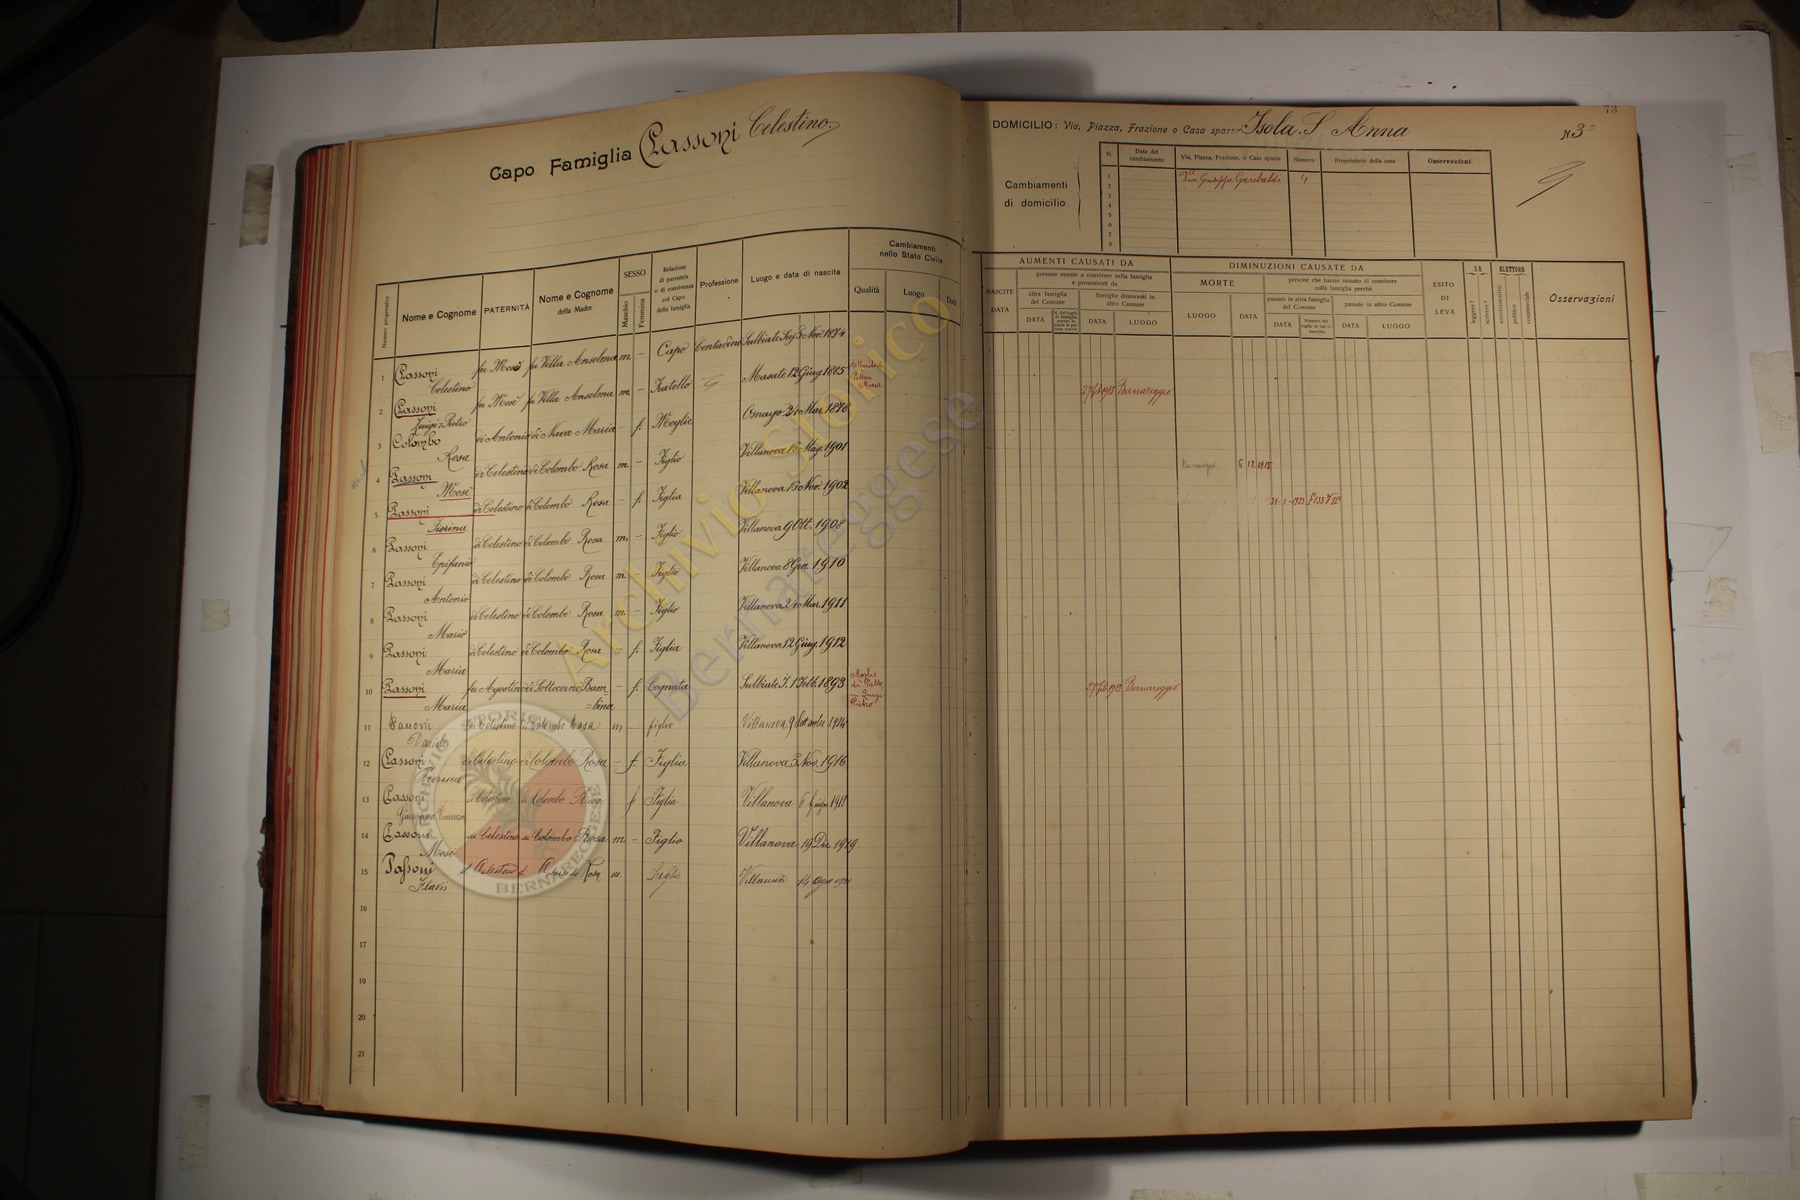 Capo Famiglia Passoni Celestino
Numero progressivo
Nome e Cognome
PATERNITÀ
Nome e Cognome della Madre
SESSO
Maschio
Femmina
Relazione di parentela o di convivenza col Capo della famiglia
Professione
Luogo e data di nascita
Cambiamenti nello Stato Civile
Qualità
Luogo
Data
1 Passoni Celestino fu Mosè fu Villa Anselma m. – Capo Contadino 3 Nov. 1874
2 Passoni Luigi Pietro fu Mosè fu Villa Anselma m. – Fratello Masate 12 Giug 1885
3 Colombo Rosa di Antonio di Nava Maria – f. Moglie Osnago 24 Mar. 1878
4 Passoni Mosè di Celestino di Colombo Rosa m. – Figlio Villanova 15 Mag. 1901
5 Passoni Fiorina di Celestino di Colombo Rosa – f. Figlia Villanova 13 Nov. 1902
6 Passoni Epifanio di Celestino di Colombo Rosa m. – Figlio Villanova 9 Ott. 1908
7 Passoni Antonio di Celestino di Colombo Rosa m. Figlio Villanova 8 Gen. 1910
8 Passoni Mario di Celestino di Colombo Rosa m. – Figlio Villanova 24 Mar. 1911
9 Passoni Maria di Celestino di Colombo Rosa f. Figlia Villanova 12 Giug. 1912
10 Passoni Maria fu Agostino di Sottocorno Bam=bina – f. Cognata Sulbiate I. 1 Febb. 1893 Moglie di Luigi Pietro
11 Passoni di Celestino di Colombo Rosa m – figlio Villanova 9 1914
12 Passoni Pierina di Celestino di Colombo Rosa – f. Figlia Villanova 3 Nov. 1916
13 Passoni di Celestino di Colombo Rosa f Figlia Villanova 6 1918
14 Passoni Mosè di Celestino di Colombo Rosa m. – Figlio Villanova 19 Dic 1919
15 Passoni di Celestino di Colombo Rosa m. Figlio Villanova 14
16
17
18
19
20
21
73
DOMICILIO: Via, Piazza, Frazione o Casa sparsa Isola S. Anna N. 3
Cambiamenti di domicilio
N.
Data del cambiamento
Via, Piazza, Frazione, o Casa sparsa
Numero
Proprietario della casa
Osservazioni
1
2 Via Giuseppe Garibaldi 4
3
4
5
6
7
8
AUMENTI CAUSATI DA
NASCITE
DATA
persone venute a convivere nella famiglia e provenienti da
altra famiglia del Comune
DATA
famiglie dimoranti in altro Comune
DATA
LUOGO
DIMINUZIONI CAUSATE DA
MORTE
LUOGO
DATA
persone che hanno cessato di convivere colla famiglia perchè
passate in altra famiglia del Comune
DATA
passate in altro Comune
DATA
LUOGO
ESITO DI LEVA
SA
leggere?
scrivere?
ELETTORE
amministrativo
politico
commerciale
Osservazioni
Bernareggio
6 12 1915
21-1-1923
Bernareggio
Archivio Storico
Bernareggese
ARCHIVIO STORICO
BERNAREGGESE